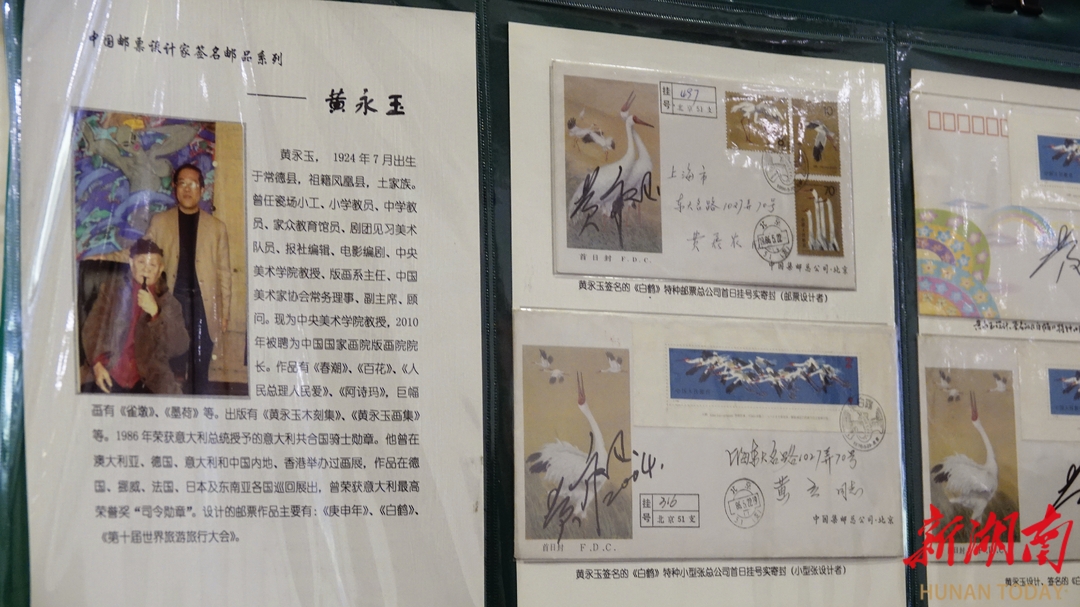 中国邮票设计家签名邮品系列
—— 黄永玉
黄永玉，1924年7月出生
于常德县，祖籍凤凰县，土家族。
曾任瓷场小工、小学教员、中学教
员、家众教育馆员、剧团见习美术
队员、报社编辑、电影编剧、中央
美术学院教授、版画系主任、中国
美术家协会常务理事、副主席、顾
问。现为中央美术学院教授，2010
年被聘为中国国家画院版画院院
长。作品有《春潮》、《百花》、《人
民总理人民爱》、《阿诗玛》，巨幅
画有《雀墩》、《墨荷》等。出版有《黄永玉木刻集》、《黄永玉画集》
等。1986年荣获意大利总统授予的意大利共合国骑士勋章。他曾在
澳大利亚、德国、意大利和中国内地、香港举办过画展，作品在德
国、挪威、法国、日本及东南亚各国巡回展出，曾荣获意大利最高
荣誉奖“司令勋章”。设计的邮票作品主要有：《庚申年》、《白鹤》、
《第十届世界旅游旅行大会》。
挂号 497
北京51支
上海市
1027弄70号
70
中国集邮总公司·北京
首日封 F.D.C.
黄永玉签名的《白鹤》特种邮票总公司首日挂号实寄封（邮票设计者）
1027弄70号
黄 同志
2004.
挂号 316
北京51支
中国集邮总公司·北京
首日封 F.D.C.
黄永玉签名的《白鹤》特种小型张总公司首日挂号实寄封（小型张设计者）
首日封 F.D.C.
黄永玉设计、签名的《白
新湖南
HUNAN TODAY